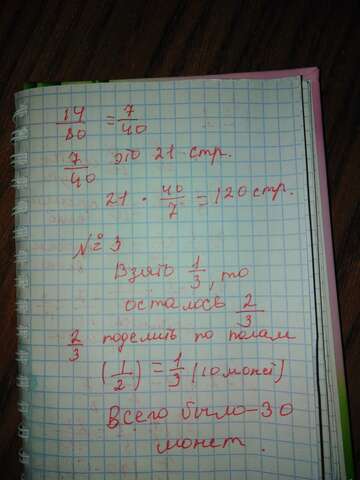 14/80 = 7/40
7/40 это 21 стр.
21 · 40/7 = 120 стр.
№ 3
Взять 1/3, то
осталось 2/3
2/3 поделить по полам
(1/2) = 1/3 (10 монет)
Всего было - 30
монет.